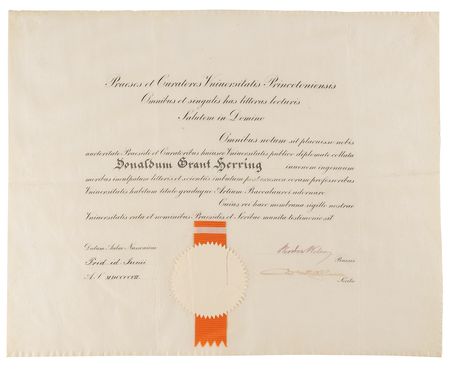 Praeses et Curatores Universitatis Princetoniensis
Omnibus et singulis has litteras lecturis
Salutem in Domino
Omnibus notum sit placuisse nobis
auctoritate Praesidi et Curatoribus huiusce Universitatis publico diplomate collata
Donaldum Grant Herring iuvenem ingenuum
moribus inculpatum litteris et scientiis imbutum post examen coram professoribus
Universitatis habitum titulo graduque Artium Baccalaurei adornare
Cuius rei haec membrana sigillo nostrae
Universitatis rata et nominibus Praesidis et Scribae munita testimonio sit
Datum Aulae Nassovicae
Prid id Junii
A.C. MDCCCCVII
Praeses
Scriba